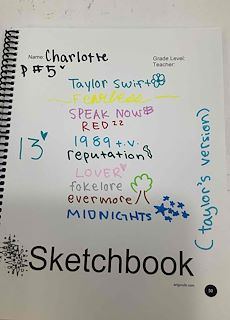 Name: Charlotte
Grade Level:
Teacher:
P #5
Taylor Swift
FEARLESS
SPEAK NOW
RED 22
1989 t.v.
reputation
LOVER
fokelore
evermore
MIDNIGHTS
13
(taylor's version)
Sketchbook
50